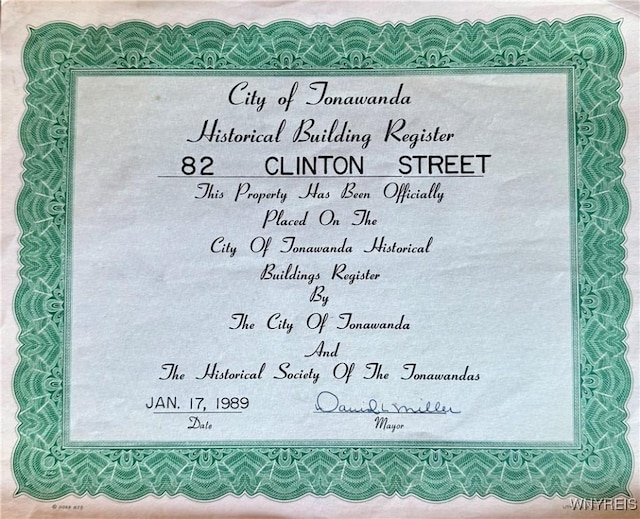 City of Tonawanda
Historical Building Register
82 CLINTON STREET
This Property Has Been Officially
Placed On The
City Of Tonawanda Historical
Buildings Register
By
The City Of Tonawanda
And
The Historical Society Of The Tonawandas
JAN. 17, 1989 David L Miller
Date Mayor
WNYREIS